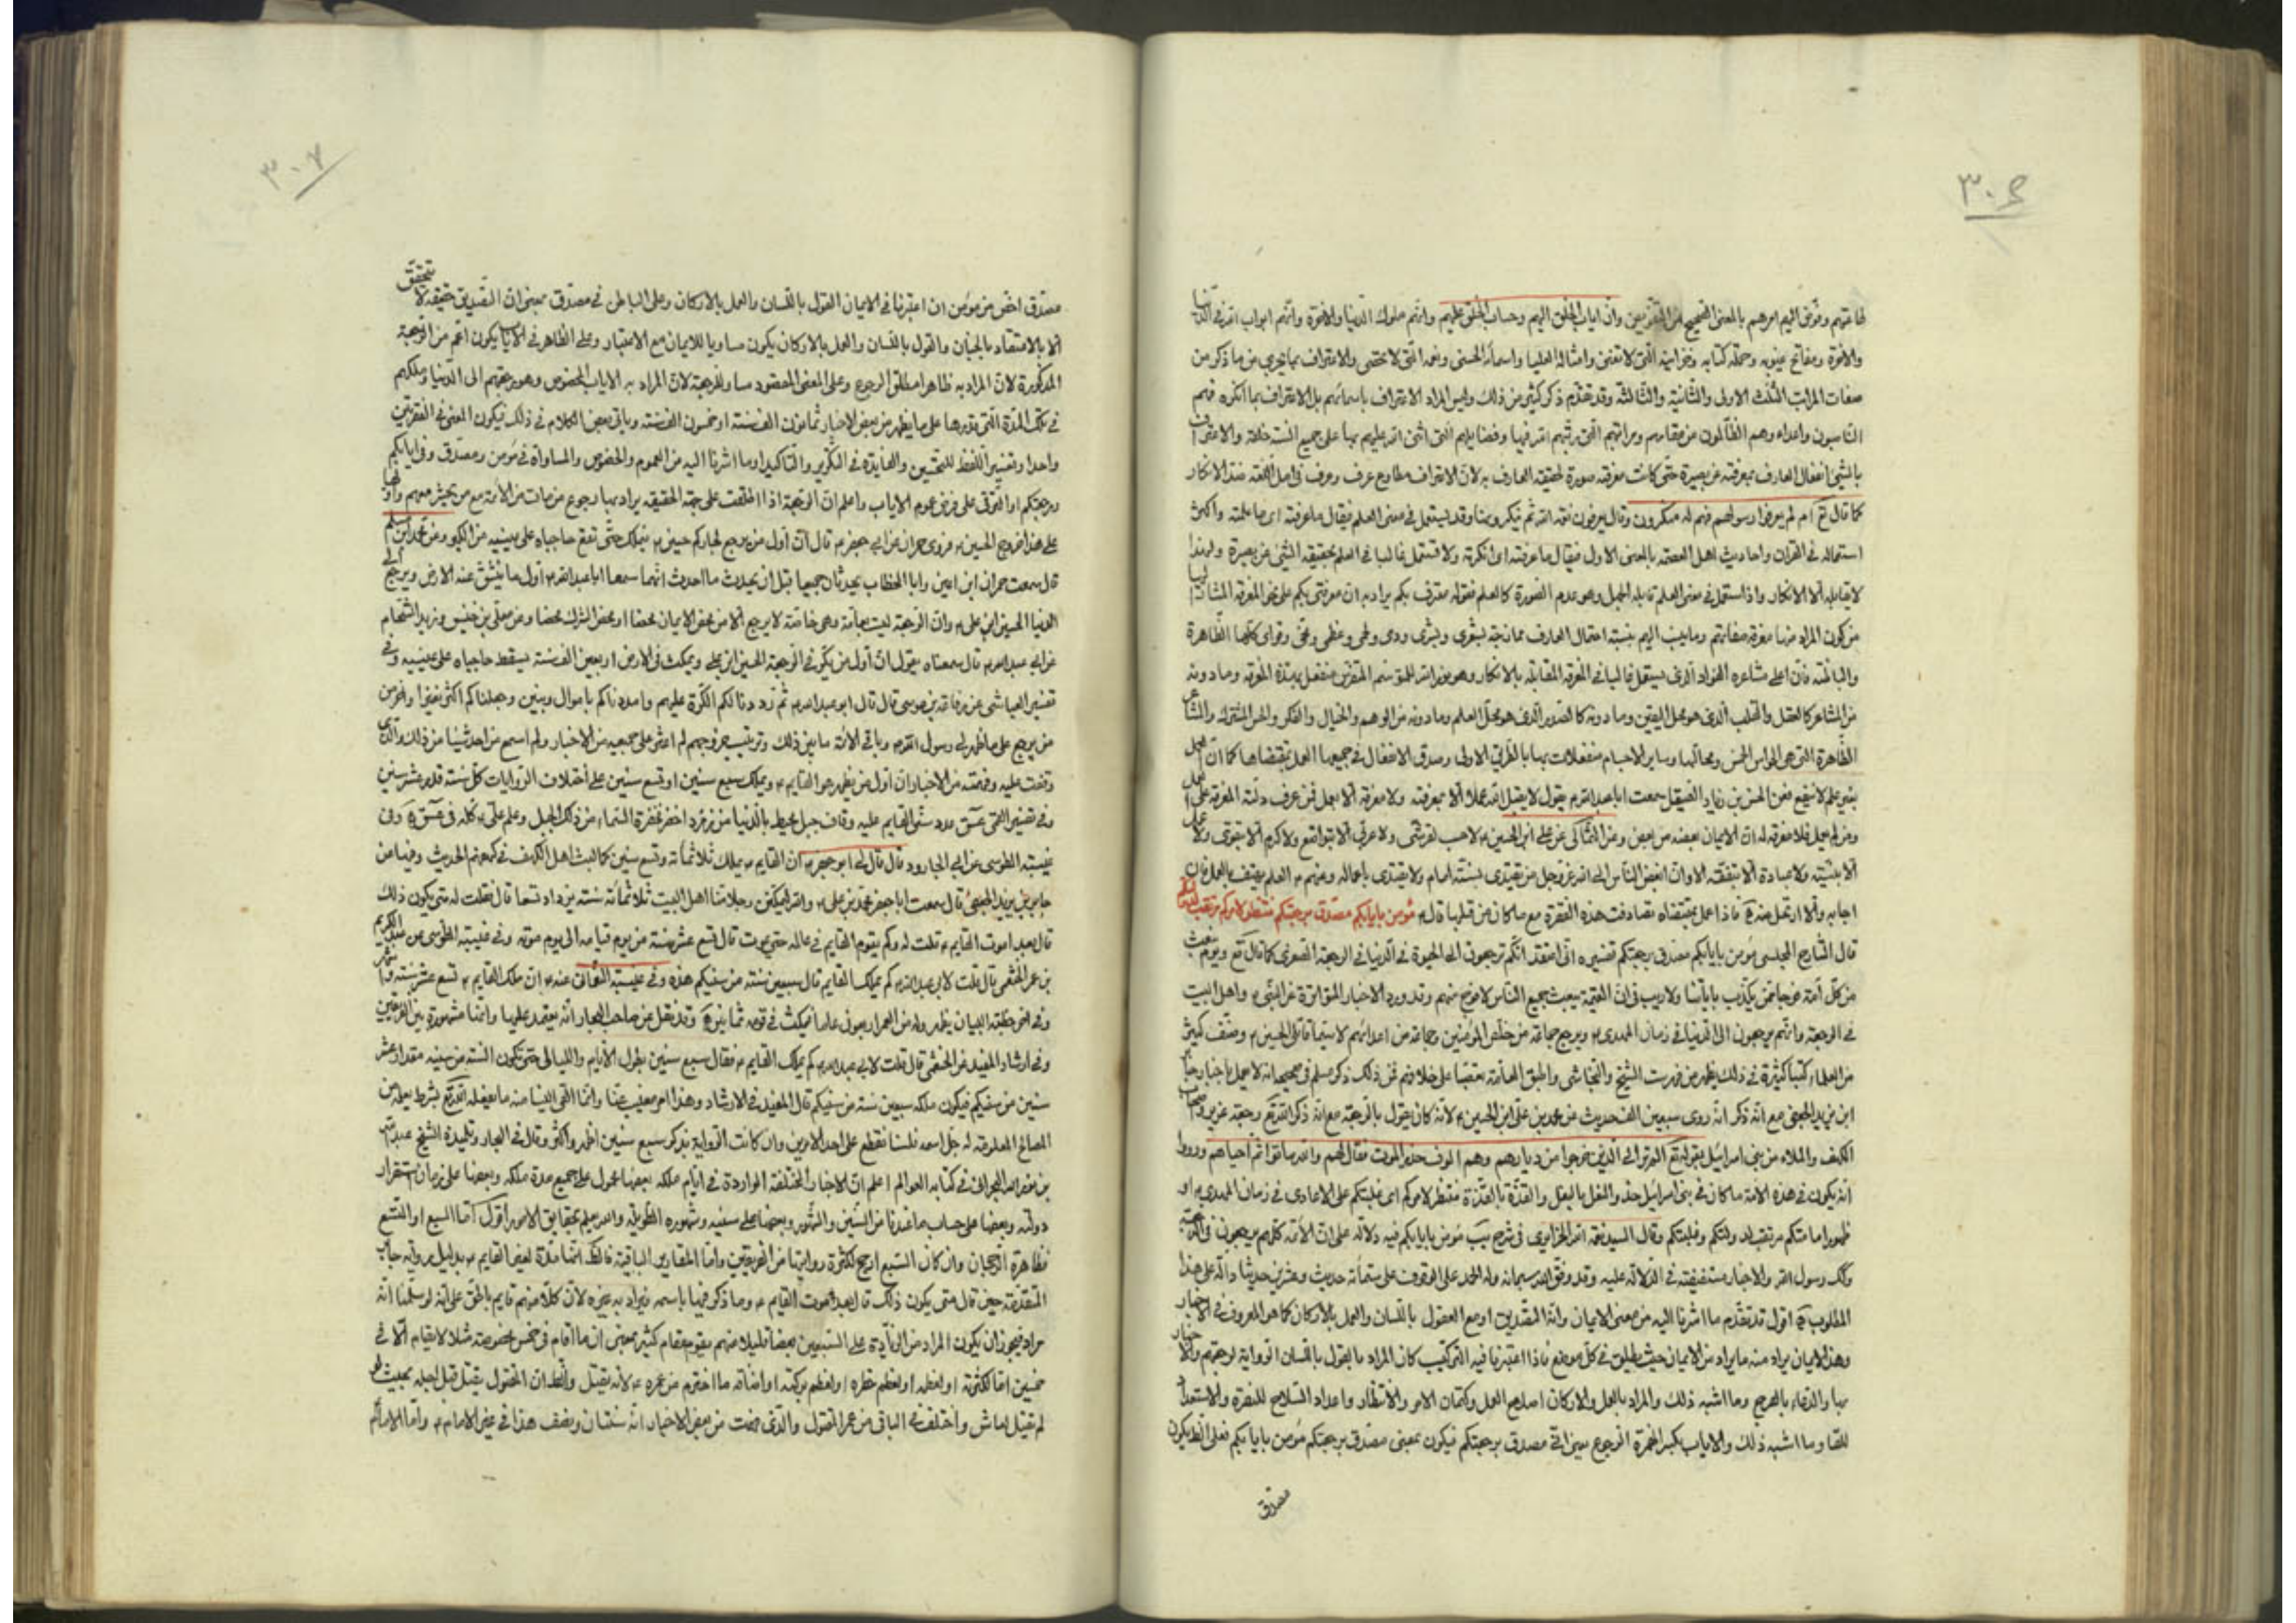 ٣٠٦
وان اياب الخلق اليهم وحساب الخلق عليهم وانهم ملوك الدنيا والاخرة وانهم ابواب الله في الدنيا
والاخرة ومفاتح غيوبه وحملة كتابه وخزائنه التي لا تفنى وامثاله العليا واسماؤه الحسنى ونعمه التي لا تحصى والاعتراف بما يجري من ما ذكر من
صفات المراتب الثلاث الاولى والثانية والثالثة وقد تقدم ذكر كثير من ذلك وليس المراد الاعتراف باسمائهم بل الاعتراف بما انكره فهم
بالشيئ انفعال العارف بمعرفته عن بصيرة حتى كانت معرفته صورة لحقيقة العارف به لان الاعتراف مطاوع عرف وعرف في اصل اللغة ضد الانكار
كما قال تع ام لم يعرفوا رسولهم فهم له منكرون وقال يعرفون نعمة الله ثم ينكرونها وقد يستعمل في معنى العلم فيقال ما عرفته اي ما علمته واكثر
استعماله في القران واحاديث اهل العصمة بالمعنى الاول فيقال ما عرفته اي انكرته ولا تستعمل غالبا في العلم بحقيقة الشئ عن بصيرة ولهذا
لا يقابله الا الانكار واذا استعمل في معنى العلم قابله الجهل وهو عدم الصورة كالعلم فقوله معترف بكم يراد به ان معرفتي بكم على نحو المعرفة المشار اليها
من كون المراد منها معرفة صفاتهم وما ينسب اليهم بنسبة احتمال العارف مما نيته لشعري وبشري ودمي ولحمي وعظمي ومخي وقواي كلها الظاهرة
والباطنة فان اعلى مشاعره الفؤاد الذي يستعمل غالبا في المعرفة المقابلة بالانكار وهو نور الله
من المشاعر كالعقل والقلب الذي هو محل اليقين وما دونه كالصدر الذي هو محل العلم وما دونه من الوهم والخيال والفكر والحس المشترك والمشاعر
الظاهرة التي هي الحواس الخمس ومحالها وساير الاجسام منفعلات بها بالطريق الاولى وصدق الانفعال في جميعها العمل بمقتضاها كما ان العمل
بغير علم لا ينفع فعن الحسن بن زياد الصيقل سمعت ابا عبد الله يقول لا يقبل الله عملا الا بمعرفة ولا معرفة الا بعمل فمن عرف دلته المعرفة على العمل
ومن لم يعمل فلا معرفة له ان الايمان بعضه من بعض وعن الثمالي عن علي ابن الحسين لا حسب لقرشي ولا عربي الا بتواضع ولا كرم الا بتقوى ولا عمل
الا بنية ولا عبادة الا بتفقه الا وان ابغض الناس الى الله عز وجل من يقتدي بسنة امام ولا يقتدي باعماله وعنهم العلم يهتف بالعمل فان
اجابه والا ارتحل عنه فاذا عمل بمقتضاه تصادفت هذه الفقرة مع ما كان من قبلها قال مؤمن بايابكم مصدق برجعتكم منتظر لامركم مرتقب لدولتكم
قال الشارح المجلسي مؤمن بايابكم مصدق برجعتكم تفسيره اني اعتقد انكم ترجعون الى الحيوة في الدنيا في الرجعة الصغرى كما قال تع ويوم نبعث
من كل امة فوجا ممن يكذب باياتنا ولا ريب في ان القيمة يبعث جميع الناس لا فوج منهم وقد ورد الاخبار المتواترة عن النبي واهل البيت
في الرجعة وانهم يرجعون الى الدنيا في زمان المهدي ويرجع جماعة من خلص المؤمنين وجماعة من اعدائهم لا سيما قاتلي الحسين وصنف كثير
من العلماء كتبا كثيرة في ذلك يظهر من فهرست الشيخ والنجاشي واطبق العامة تعصبا على خلافهم فمن ذلك ذكر مسلم في صحيحه انه لا يعمل باخبار جابر
ابن يزيد الجعفي مع انه ذكر انه روى سبعين الف حديث من محمد بن علي ابن الحسين لانه كان يقول بالرجعة مع انه ذكر الله تع رجعة عزير واصحاب
الكهف والملاء من بني اسرائيل بقوله تع الم تر الى الذين خرجوا من ديارهم وهم الوف حذر الموت فقال لهم الله موتوا ثم احياهم وورد
انه يكون في هذه الامة ما كان في بني اسرائيل حذو النعل بالنعل والقذة بالقذة منتظر لامركم اي غلبتكم على الاعادي في زمان المهدي او
ظهور امامتكم مرتقب لدولتكم وغلبتكم وقال السيد نعمة الله الجزائري في شرح يب مؤمن بايابكم فيه دلالة على ان الائمة كلهم يرجعون في الرجعة
وكك رسول الله والاخبار مستفيضة في الدلالة عليه وقد وفق الله سبحانه وله الحمد على الوقوف على ستمائة حديث وعشرين حديثا دالة على هذا
المطلوب اقول قد تقدم ما اشرنا اليه من معنى الايمان وانه التصديق او مع القول باللسان والعمل بالاركان كما هو المعروف في الاخبار
وهذا الايمان يراد منه ما يراد من الايمان حيث يطلق في كل موضع فاذا اعتبرنا فيه التركيب كان المراد بالقول باللسان الرواية لرجعتهم والاخبار
بها والدعاء بالفرج وما اشبه ذلك والمراد بالعمل والاركان اصلاح العمل وكتمان الامر والانتظار واعداد السلاح للنصرة والاستعداد
للقاء وما اشبه ذلك والاياب بكسر الهمزة الرجوع يعني اني مصدق برجعتكم فيكون بمعنى مصدق برجعتكم مؤمن بايابكم فعلى الظ يكون
مصدق
٣٠٧
مصدق اخص من مؤمن ان اعتبرنا في الايمان القول باللسان والعمل بالاركان وعلى الباطن في مصدق بمعنى ان التصديق حقيقة لا يتحقق
الا بالاعتقاد بالجنان والقول باللسان والعمل بالاركان يكون مساويا للايمان مع الاعتبار وعلى الظاهر في الاياب يكون اعم من الرجعة
المذكورة لان المراد به ظاهرا مطلق الرجوع وعلى المعنى المقصود مساو للرجعة لان المراد به الاياب المخصوص وهو رجعتهم الى الدنيا وملكهم
في تلك المدة التي قدرها على ما يظهر من بعض الاخبار ثمانون الف سنة او خمسون الف سنة وياتي بعض الكلام في ذلك فيكون المعنى في الفقرتين
واحدا وتغيير اللفظ للتحسين والفايدة في التكرير والتاكيد او ما اشرنا اليه من العموم والخصوص والمساواة في مؤمن ومصدق وفي ايابكم
ورجعتكم او الترقي على فرض عموم الاياب واعلم ان الرجعة اذا اطلقت على جهة الحقيقة يراد بها رجوع من مات من الائمة مع من يحشر معهم واولها
على هذا خروج الحسين فروى حمران عن ابي جعفر قال ان اول من يرجع لجاركم حسين فيملك حتى تقع حاجباه على عينيه من الكبر وعن محمد ابن مسلم
قال سمعت حمران ابن اعين وابا الخطاب يحدثان جميعا قبل ان يحدث ما احدث انهما سمعا ابا عبد الله اول ما تنشق عنه الارض ويرجع الى
الدنيا الحسين ابن علي وان الرجعة ليست بعامة وهي خاصة لا يرجع الا من محض الايمان محضا او محض الشرك محضا وعن معلى بن خنيس وزيد الشحام
عن ابي عبد الله قال سمعناه يقول ان اول من يكر في الرجعة الحسين ابن علي ويمكث في الارض اربعين الف سنة يسقط حاجباه على عينيه وفي
تفسير العياشي عن رفاعة بن موسى قال قال ابو عبد الله ثم رددنا لكم الكرة عليهم وامددناكم باموال وبنين وجعلناكم اكثر نفيرا واخر من
من يرجع على ما ظهر لي رسول الله وباقي الائمة ما بين ذلك وترتيب خروجهم لم اعثر على جميعه من الاخبار ولم اسمع من احد شيئا من ذلك والذي
وقفت عليه وفهمته من الاخبار ان اول من يظهر هو القايم ويملك سبع سنين او تسع سنين على اختلاف الروايات كل سنة قدر عشر سنين
وفي تفسير القمي عسق عدد سني القايم عليه وقاف جبل محيط بالدنيا من زمرد اخضر فخضرة السماء من ذلك الجبل وعلم علي كله في عسق وفي
غيبة الطوسي عن ابي الجارود قال قال لي ابو جعفر ان القايم يملك ثلاثمائة وتسع سنين كما لبث اهل الكهف في كهفهم الحديث وفيها عن
جابر بن يزيد الجعفي قال سمعت ابا جعفر محمد بن علي والله ليملكن رجل منا اهل البيت ثلاثمائة سنة يزداد تسعا قال فقلت له متى يكون ذلك
قال بعد موت القايم قلت له وكم يقوم القايم في عالمه حتى يموت قال تسع عشر سنة من يوم قيامه الى يوم موته وفي غيبة الطوسي عن عبد الكريم
بن عمر الخثعمي قال قلت لابي عبد الله كم يملك القايم قال سبعين سنة من سنيكم هذه وفي غيبة النعماني عنه ان ملك القايم تسع عشر سنة واشهر
وفي ارشاد المفيد عن الخثعمي قال قلت لابي عبد الله كم يملك القايم فقال سبع سنين يطول الايام والليالي حتى تكون السنة من سنيه مقدار عشر
سنين من سنيكم فيكون ملكه سبعين سنة من سنيكم قال المفيد في الارشاد وهذا امر مغيب عنا وانما القي الينا منه ما يفعله الله تع بشرط يعلم من
المصالح المعلومة له جل اسمه فلسنا نقطع على احد الامرين وان كانت الرواية بذكر سبع سنين اظهر واكثر وقال في البحار وتلميذه الشيخ عبد الله
بن نور الله البحراني في كتابه العوالم اعلم ان الاخبار المختلفة الواردة في ايام ملكه بعضها محمول على جميع مدة ملكه وبعضها على زمان استقرار
دولته وبعضها على حساب ما عندنا من السنين والشهور وبعضها على سنيه وشهوره الطويلة والله يعلم بحقايق الامور اقول اما السبع او التسع
فظاهرة الرجحان وان كان السبع ارجح لكثرة روايتها من الفريقين واما المقادير الباقية فالظ انها مدة لغير القايم بدليل رواية جابر
المتقدمة حين قال متى يكون ذلك قال بعد موت القايم وما ذكر فيها باسمه فيراد به غيره لان كلا منهم قايم بالحق على انه لو سلمنا انه
مراد فيجوز ان يكون المراد من الزيادة على السبعين بعضا قليلا منهم يقوم مقام كثير بمعنى ان ما اقام في خمس بخصوصه مثلا لا يقام الا في
خمسين اما لكثرة او لعظم او لعظم خطره او لعظم بركته او اضافة ما اخترم من عمره لانه يقتل والظ ان المقتول يقتل قبل اجله بحيث لو
لم يقتل لعاش واختلف في الباقي من عمر المقتول والذي فهمت من بعض الاخبار انه سنتان ونصف هذا في غير الامام واما الامام